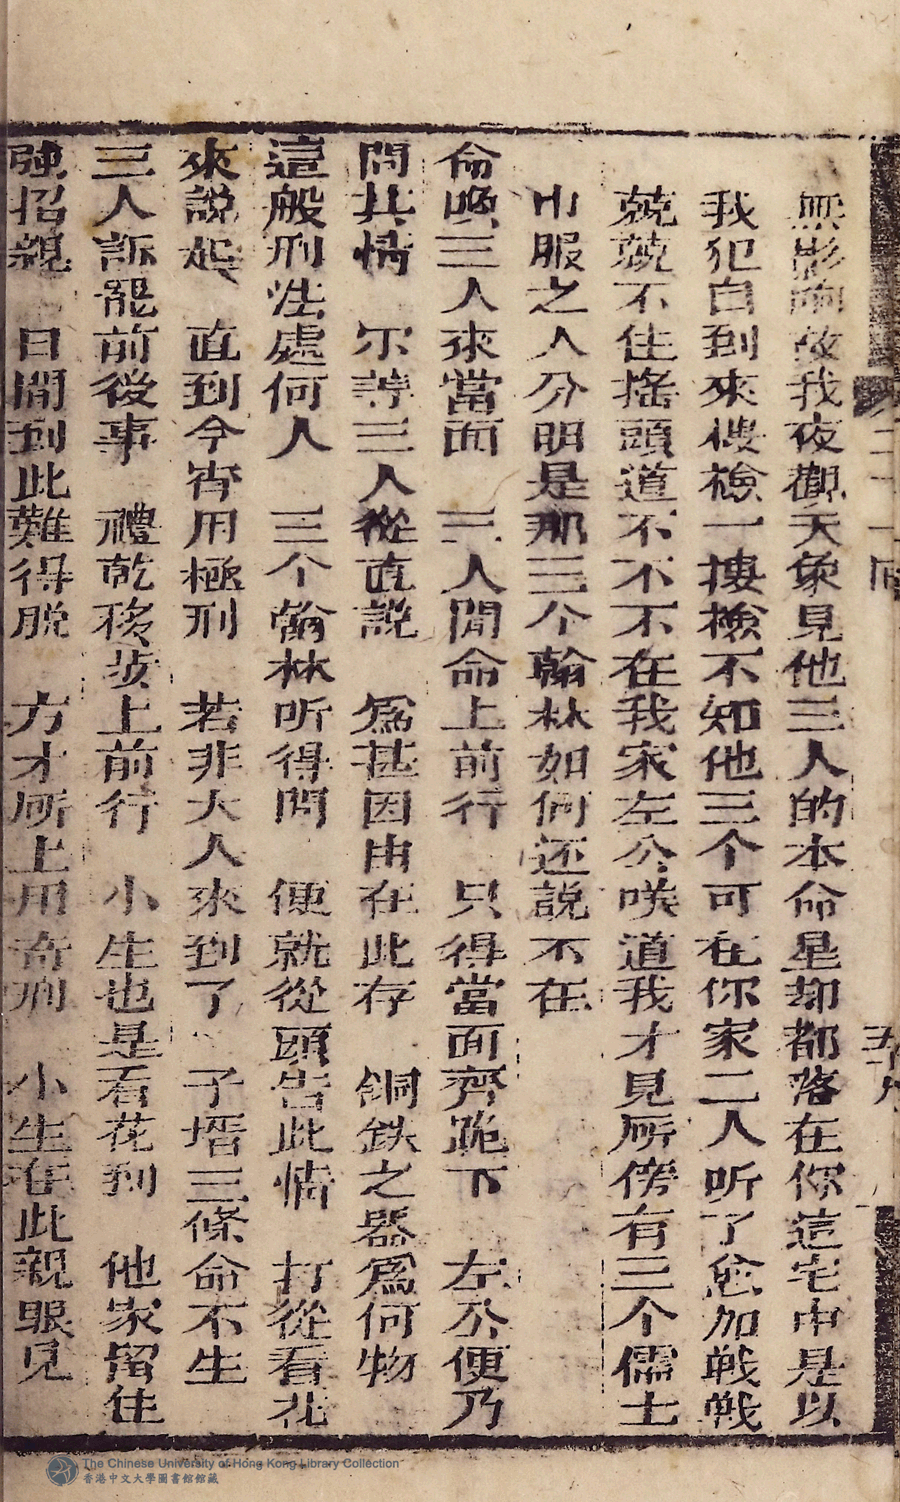 無影响故我夜觀天象見他三人的本命星却都落在你這宅中是以
我犯自到來搜檢一搜檢不知他三个可在你家二人听了愈加戦戦
兢兢不住搖頭道不不不在我家左公咲道我才見厮傍有三个儒士
巾服之人分明是那三个翰林如何还説不在
命喚三人來當面 三人聞命上前行 只得當面齊跪下 左公便乃
問其情 尔等三人從直説 為甚因由在此存 銅鉄之器為何物
這般刑法處何人 三个翰林听得問 便就從頭告此情 打從看花
來説起 直到今宵用極刑 若非大人來到了 子壻三條命不生
三人訴罷前後事 禮乾移步上前行 小生也是看花到 他家留住
強招親 日間到此難得脱 方才厮上用奇刑 小生在此親眼見
二十一回
五十九
The Chinese University of Hong Kong Library Collection
香港中文大學圖書館館藏